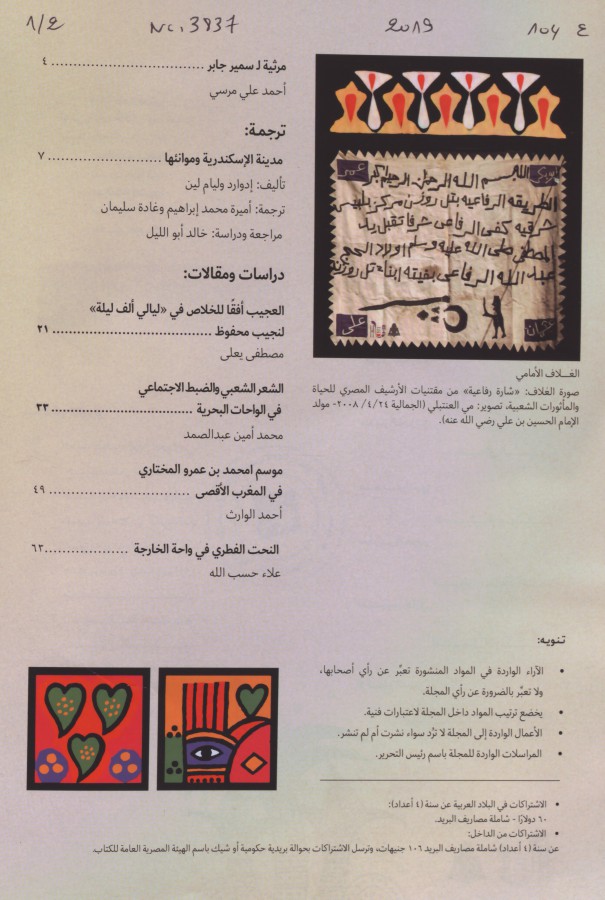 1/2 Nc. 3837 2019 104 ع
مرثية لـ سمير جابر ................................ ٤
أحمد علي مرسي
ترجمة:
مدينة الإسكندرية وموانئها ........................ ٧
تأليف: إدوارد وليام لين
ترجمة: أميرة محمد إبراهيم وغادة سليمان
مراجعة ودراسة: خالد أبو الليل
دراسات ومقالات:
العجيب أفقًا للخلاص في «ليالي ألف ليلة»
لنجيب محفوظ .................................. ٢١
مصطفى يعلى
الشعر الشعبي والضبط الاجتماعي
في الواحات البحرية .............................. ٣٣
محمد أمين عبدالصمد
موسم امحمد بن عمرو المختاري
في المغرب الأقصى .............................. ٤٩
أحمد الوارث
النحت الفطري في واحة الخارجة ..................٦٢
علاء حسب الله
أبو بكر
عمر
بسم الله الرحمن الرحيم
الطريقه الرفاعيه بتل روزن مركز بلبيس
شرقيه كفى الرفاعى شرفا تقبل يد
المصطفى صلى الله عليه وسلم اولاد الحج
عبد الله الرفاعى بقيته ابناء تل روزنة
عثمان
على
الغــلاف الأمامي
صورة الغلاف: «شارة رفاعية» من مقتنيات الأرشيف المصري للحياة
والمأثورات الشعبية، تصوير: مي العنتبلي (الجمالية ٢٤/ ٤/ ٢٠٠٨- مولد
الإمام الحسين بن علي رضي الله عنه).
تنويه:
• الآراء الواردة في المواد المنشورة تعبِّر عن رأي أصحابها،
ولا تعبِّر بالضرورة عن رأي المجلة.
• يخضع ترتيب المواد داخل المجلة لاعتبارات فنية.
• الأعمال الواردة إلى المجلة لا تُرَد سواء نشرت أم لم تنشر.
• المراسلات الواردة للمجلة باسم رئيس التحرير.
• الاشتراكات في البلاد العربية عن سنة (٤ أعداد):
٦٠ دولارًا - شاملة مصاريف البريد.
• الاشتراكات من الداخل:
عن سنة (٤ أعداد) شاملة مصاريف البريد ١٠٦ جنيهات، وترسل الاشتراكات بحوالة بريدية حكومية أو شيك باسم الهيئة المصرية العامة للكتاب.